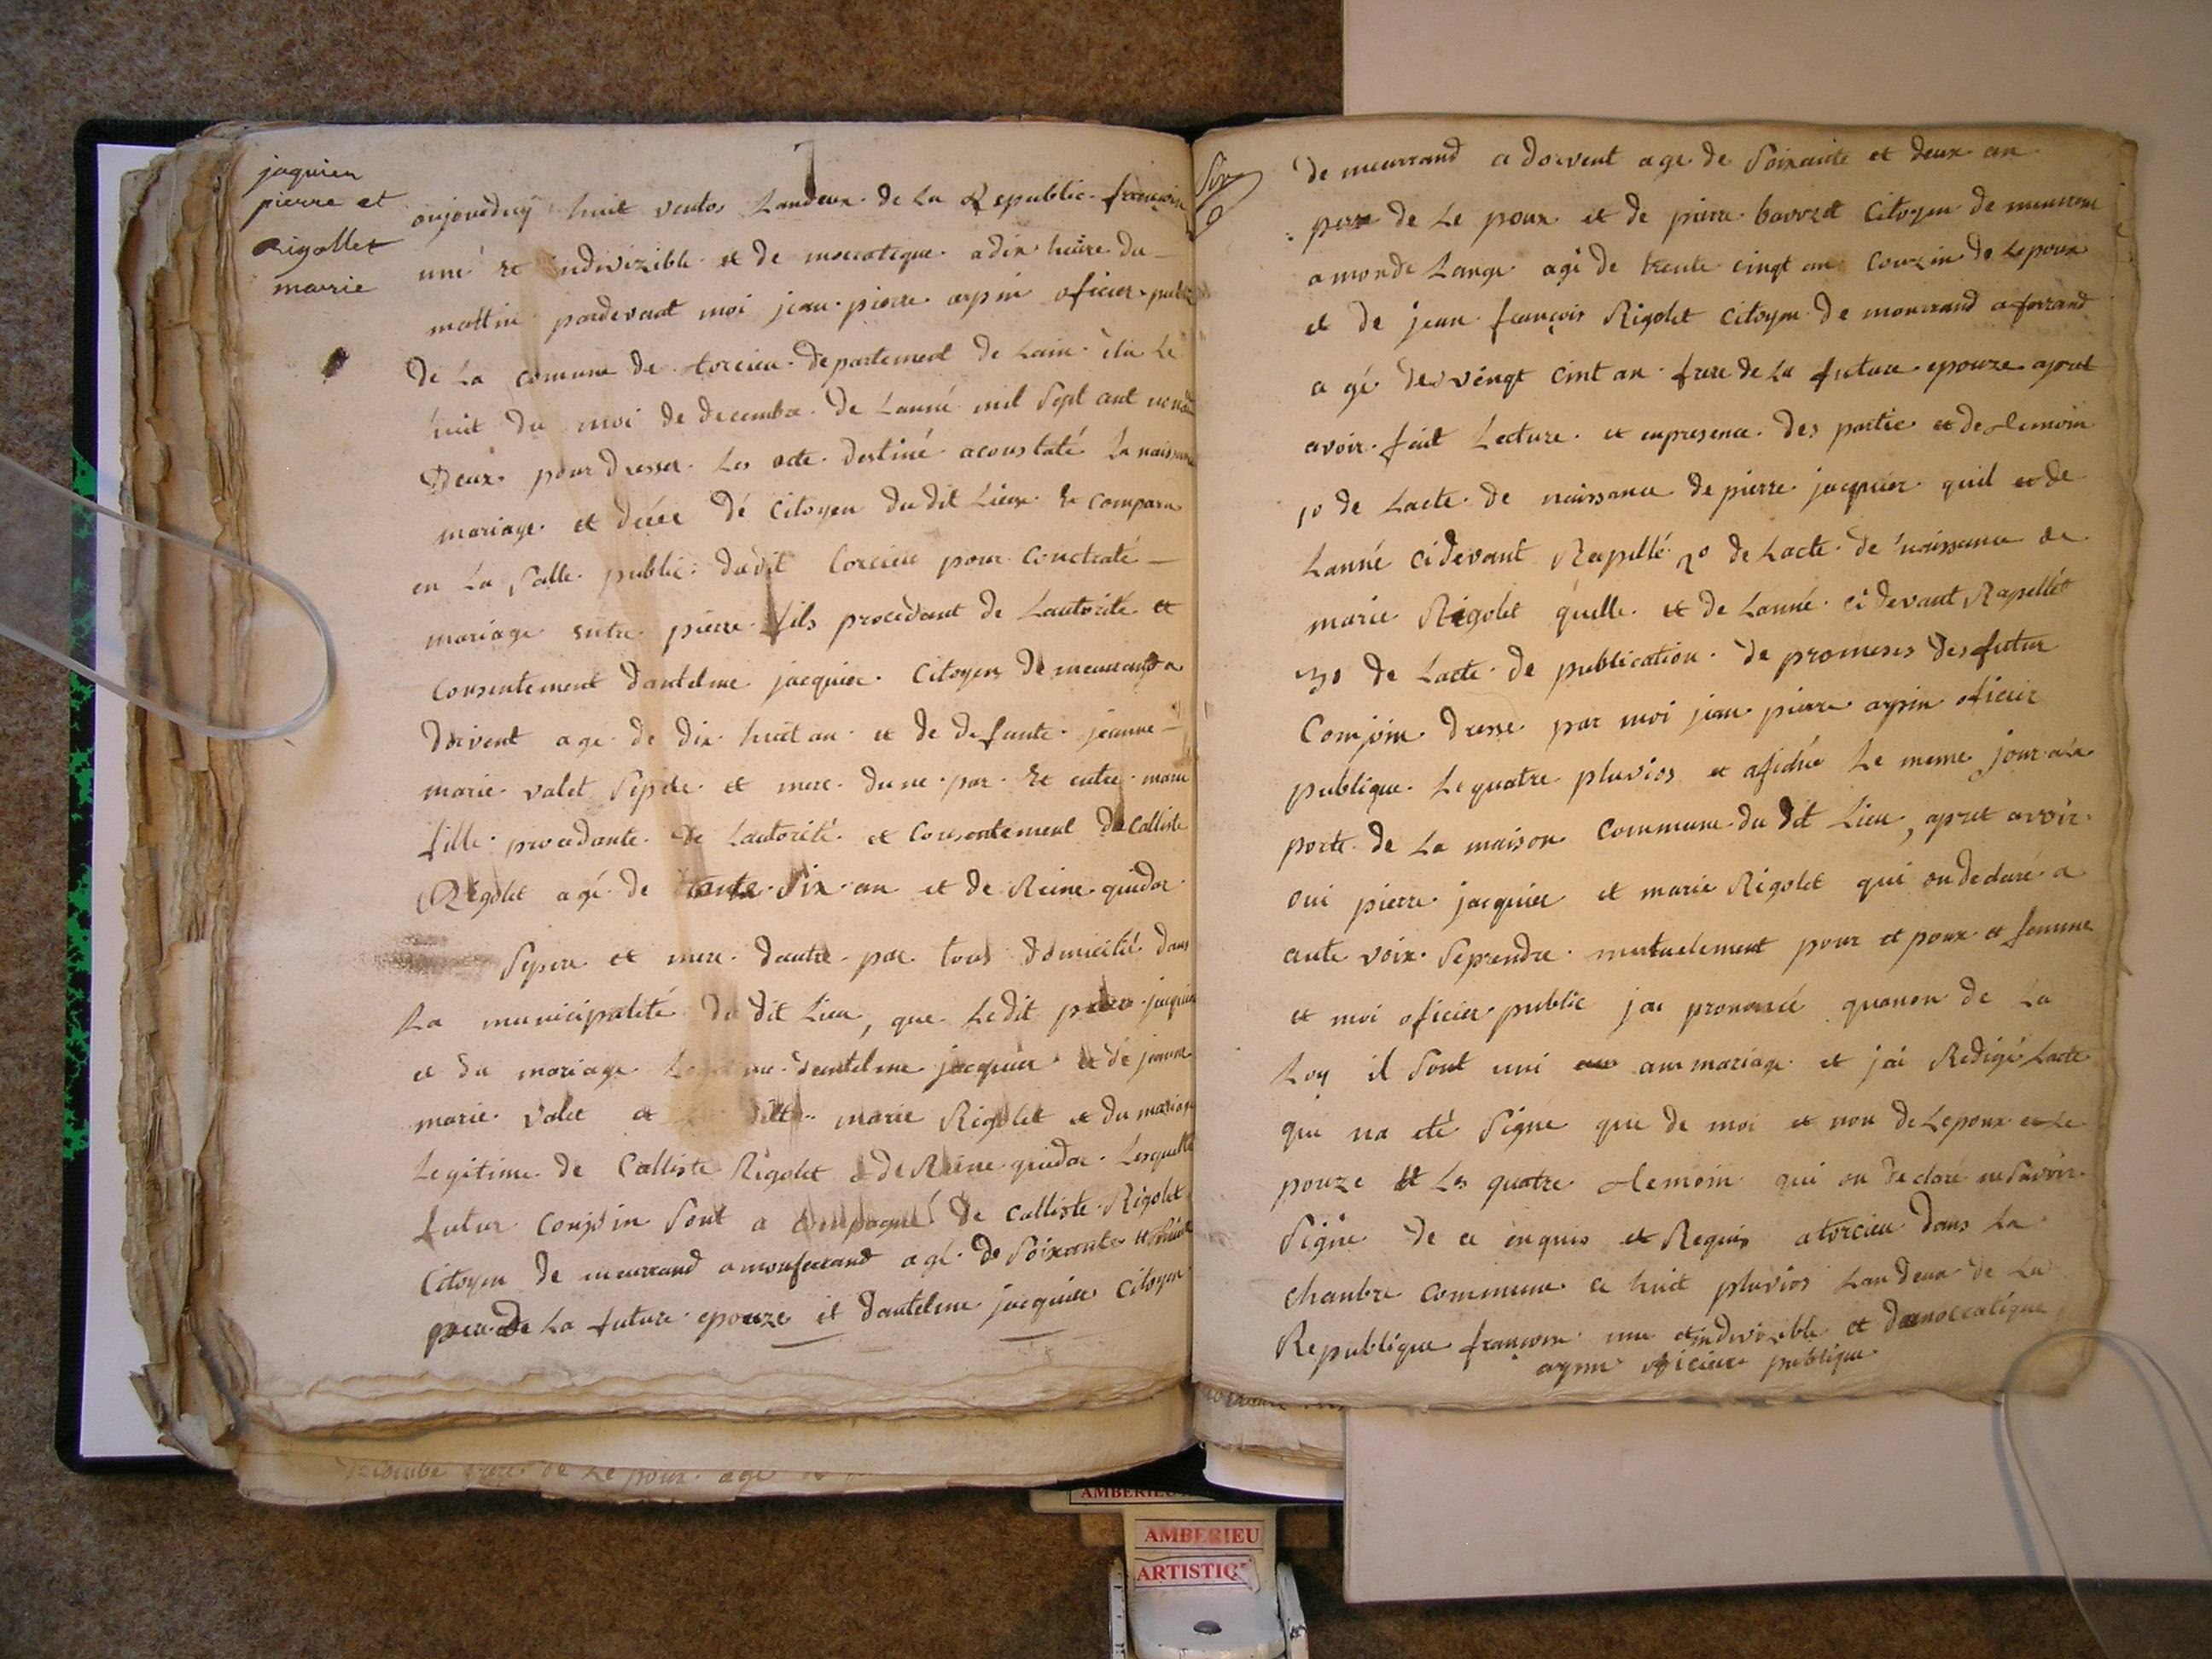 jaquier
pierre et
Rigollet
marie
aujourduy huit ventos Landeux de La Republic françoise
une et indivizible et de mocratique a dix heure du
mattin pardevant moi jean pierre arpin oficier public
De La comune de torcieu departement de Lain élu Le
huit du moi de decembre de Lanné mil Sept cent nonante
Deux pour dresser Les acte destiné aconstaté La naissance
mariage et décéé dé Citoyen du dit Lieux et comparu
en La Salle public dudit torcieu pour contraté
mariage entre pierre fils procedant de Lautorité et
consentement dantelme jacquier Citoyen de meurrand a
dorvent age de dix huit an et de defunte jeanne
marie valet Sepere et mere dune par et entre marie
fille procedante de Lautorité et consentement de Calliste
Rigolet agé de trante Six an et de Reine guidor
Sepere et mere dautre par tous domicilié dans
La municipalité du dit Lieu, que Ledit pierre jacquier
et du mariage dantelme jacquier et de jeanne
marie valet et marie Rigolet et du mariage
Legitime de Calliste Rigolet et de Reine guidor Lesquelle
futur conjoin Sont a compagné de Calliste Rigolet
Citoyen de meurrand amonferrand agé de Soixante
pere de La future epouze et dantelme jacquier Citoyen
de meurrand a dorvent age de Soixante et deux an
pere de Le poux et de pierre bavozet Citoyen de meurrand
amonde Lange agé de trente cingt an couzin de Lepoux
et de jean françois Rigolet citoyen de meurrand aferrand
a gé de vengt cint an frere de La future epouze apret
avoir fait Lecture et enpresence des partie et de temoin
1º de Lacte de naissance de pierre jacquier quil et de
Lanné cidevant Rapellé 2º de Lacte de naissance de
marie Rigolet quelle et de Lanné ci devant Rapellét
3º de Lacte de publication de promeses des futur
Comjoin dresse par moi jean pierre arpin oficier
publique Le quatre pluvios et afiché Le meme jour a La
porte de La maison Commune du dit Lieu, apret avoir
oui pierre jacquier et marie Rigolet qui on declaré a
aute voix Seprendre mutuelement pour et poux et femme
et moi oficier public jai prononcé quanon de La
Loy il Sont uni au mariage et jai Redigé Lacte
qui na eté Signe que de moi et non de Lepoux et Le
pouze et Les quatre temoin qui on declaré ne Savoir
Signé de ce enquis et Requis atorcieu dans La
chanbre commune ce huit pluvios Lan deux de La
Republique françoise une etindivizible et democratique
arpin oficier publique
AMBERIEU
ARTISTIQ